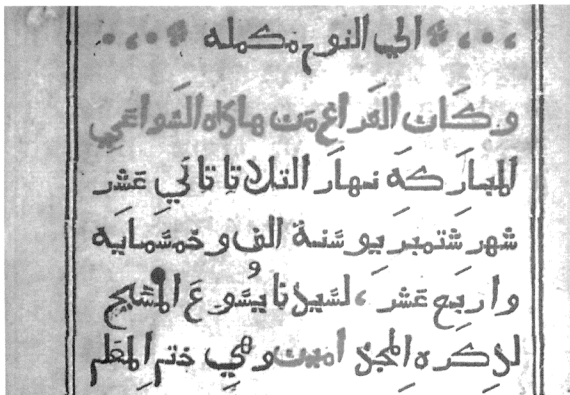 الي النوح مكمله
وكَان الفَراغ مَن هاذه السَواعَي
المبارَكَة نهارَ التلاتا تانَي عَشَر
شهر شَتمبرَيو سَنة الف وخمسَمايَه
واربَع عَشرَ، لسَيدنا يسُوعَ المسَيِح
لذِكره المِجد امين وهَي ختم المِعَلم